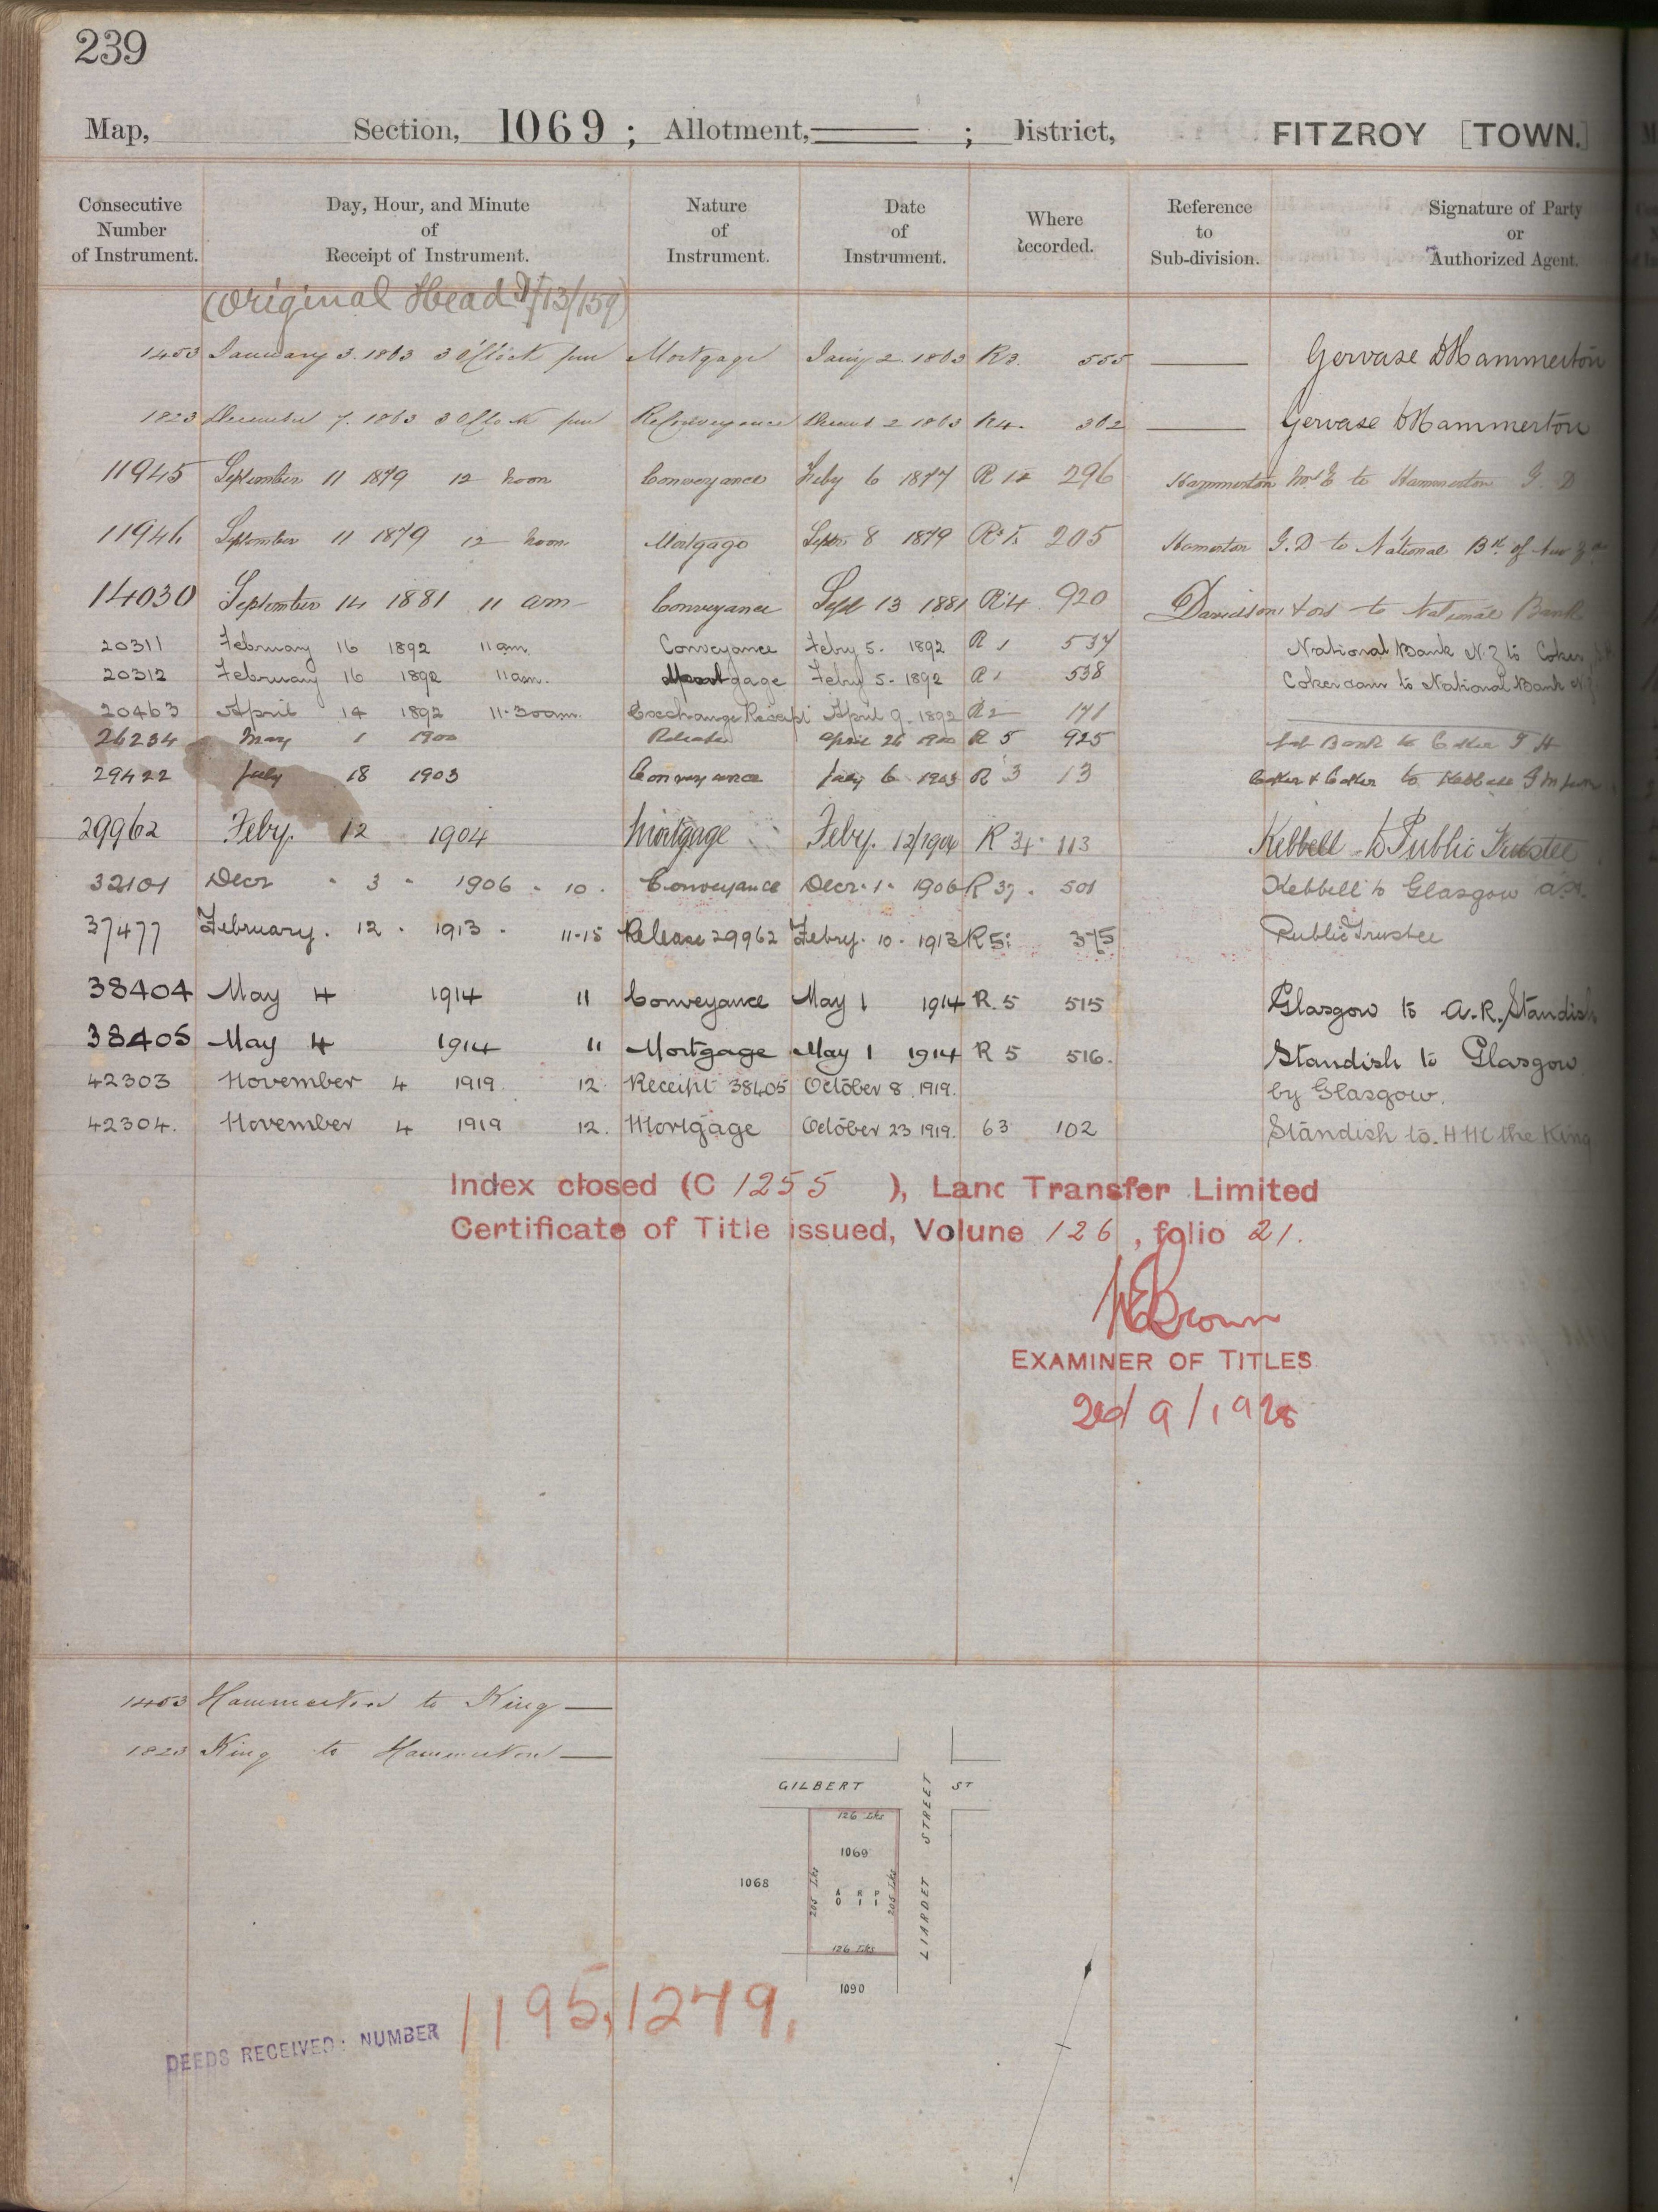 239
Map, Section, 1069 ; Allotment, ; District, FITZROY [TOWN.]
Consecutive Number of Instrument. Day, Hour, and Minute of Receipt of Instrument. Nature of Instrument. Date of Instrument. Where Recorded. Reference to Sub-division. Signature of Party or Authorized Agent.
(Original Head /13/159)
1453 January 3. 1863 3 O'Clock pm Mortgage Jany 2 1863 R3. 555 Gervase D Hammerton
1823 December 7. 1863 3 OClock pm Reconveyance 2 1863 R4. 302 Gervase D Hammerton
11945 September 11 1879 12 noon Conveyance Feby 6 1877 R 296 Hammerton to Hammerton G. D
11946 September 11 1879 12 noon Mortgage Septr 8 1879 205 G.D to National Bk of New
14030 September 14 1881 11 am Conveyance Sept 13 1881 920 Davidson & ors to National Bank
20311 February 16 1892 11 am Conveyance Feby 5. 1892 R 1 537 National Bank N.Z to Coker
20312 February 16 1892 11 am. Mortgage Feby 5. 1892 R 1 538 Coker to National Bank N.Z
20463 April 14 1892 11.30 am. Exchange Receipt April 9. 1892 R 2 171
26234 May 1 1900 Release April 26 1900 R 5 925 Nat Bank to Coker
29422 July 18 1903 Conveyance July 6 1903 R 3 13 Coker & Coker to Kebbell
29962 Feby. 12 1904 Mortgage Feby. 12/1904 R 34 113 Kebbell to Public Trustee
32101 Decr 3 1906 10. Conveyance Decr. 1. 1906 R 37. 501 Kebbell to Glasgow
37477 February. 12. 1913. 11.15 Release 29962 Febry. 10. 1913 375 Public Trustee
38404 May 4 1914 11 Conveyance May 1 1914 R. 5 515 Glasgow to A.R. Standish
38405 May 4 1914 11 Mortgage May 1 1914 R 5 516. Standish to Glasgow
42303 November 4 1919. 12. Receipt 38405 October 8 1919. by Glasgow.
42304. November 4 1919 12. Mortgage October 23 1919. 63 102 Standish to H M the King
Index closed (C 1255 ), Land Transfer Limited
Certificate of Title issued, Volume 126, folio 21.
Brown
EXAMINER OF TITLES
/ 9 / 1928
1453 Hammerton to King
1823 King to Hammerton
GILBERT ST
LIARDET STREET
126 Lks
1069
1068
205 Lks
A R P
0 1 1
205 Lks
126 Lks
1090
DEEDS RECEIVED: NUMBER 1195, 1279,